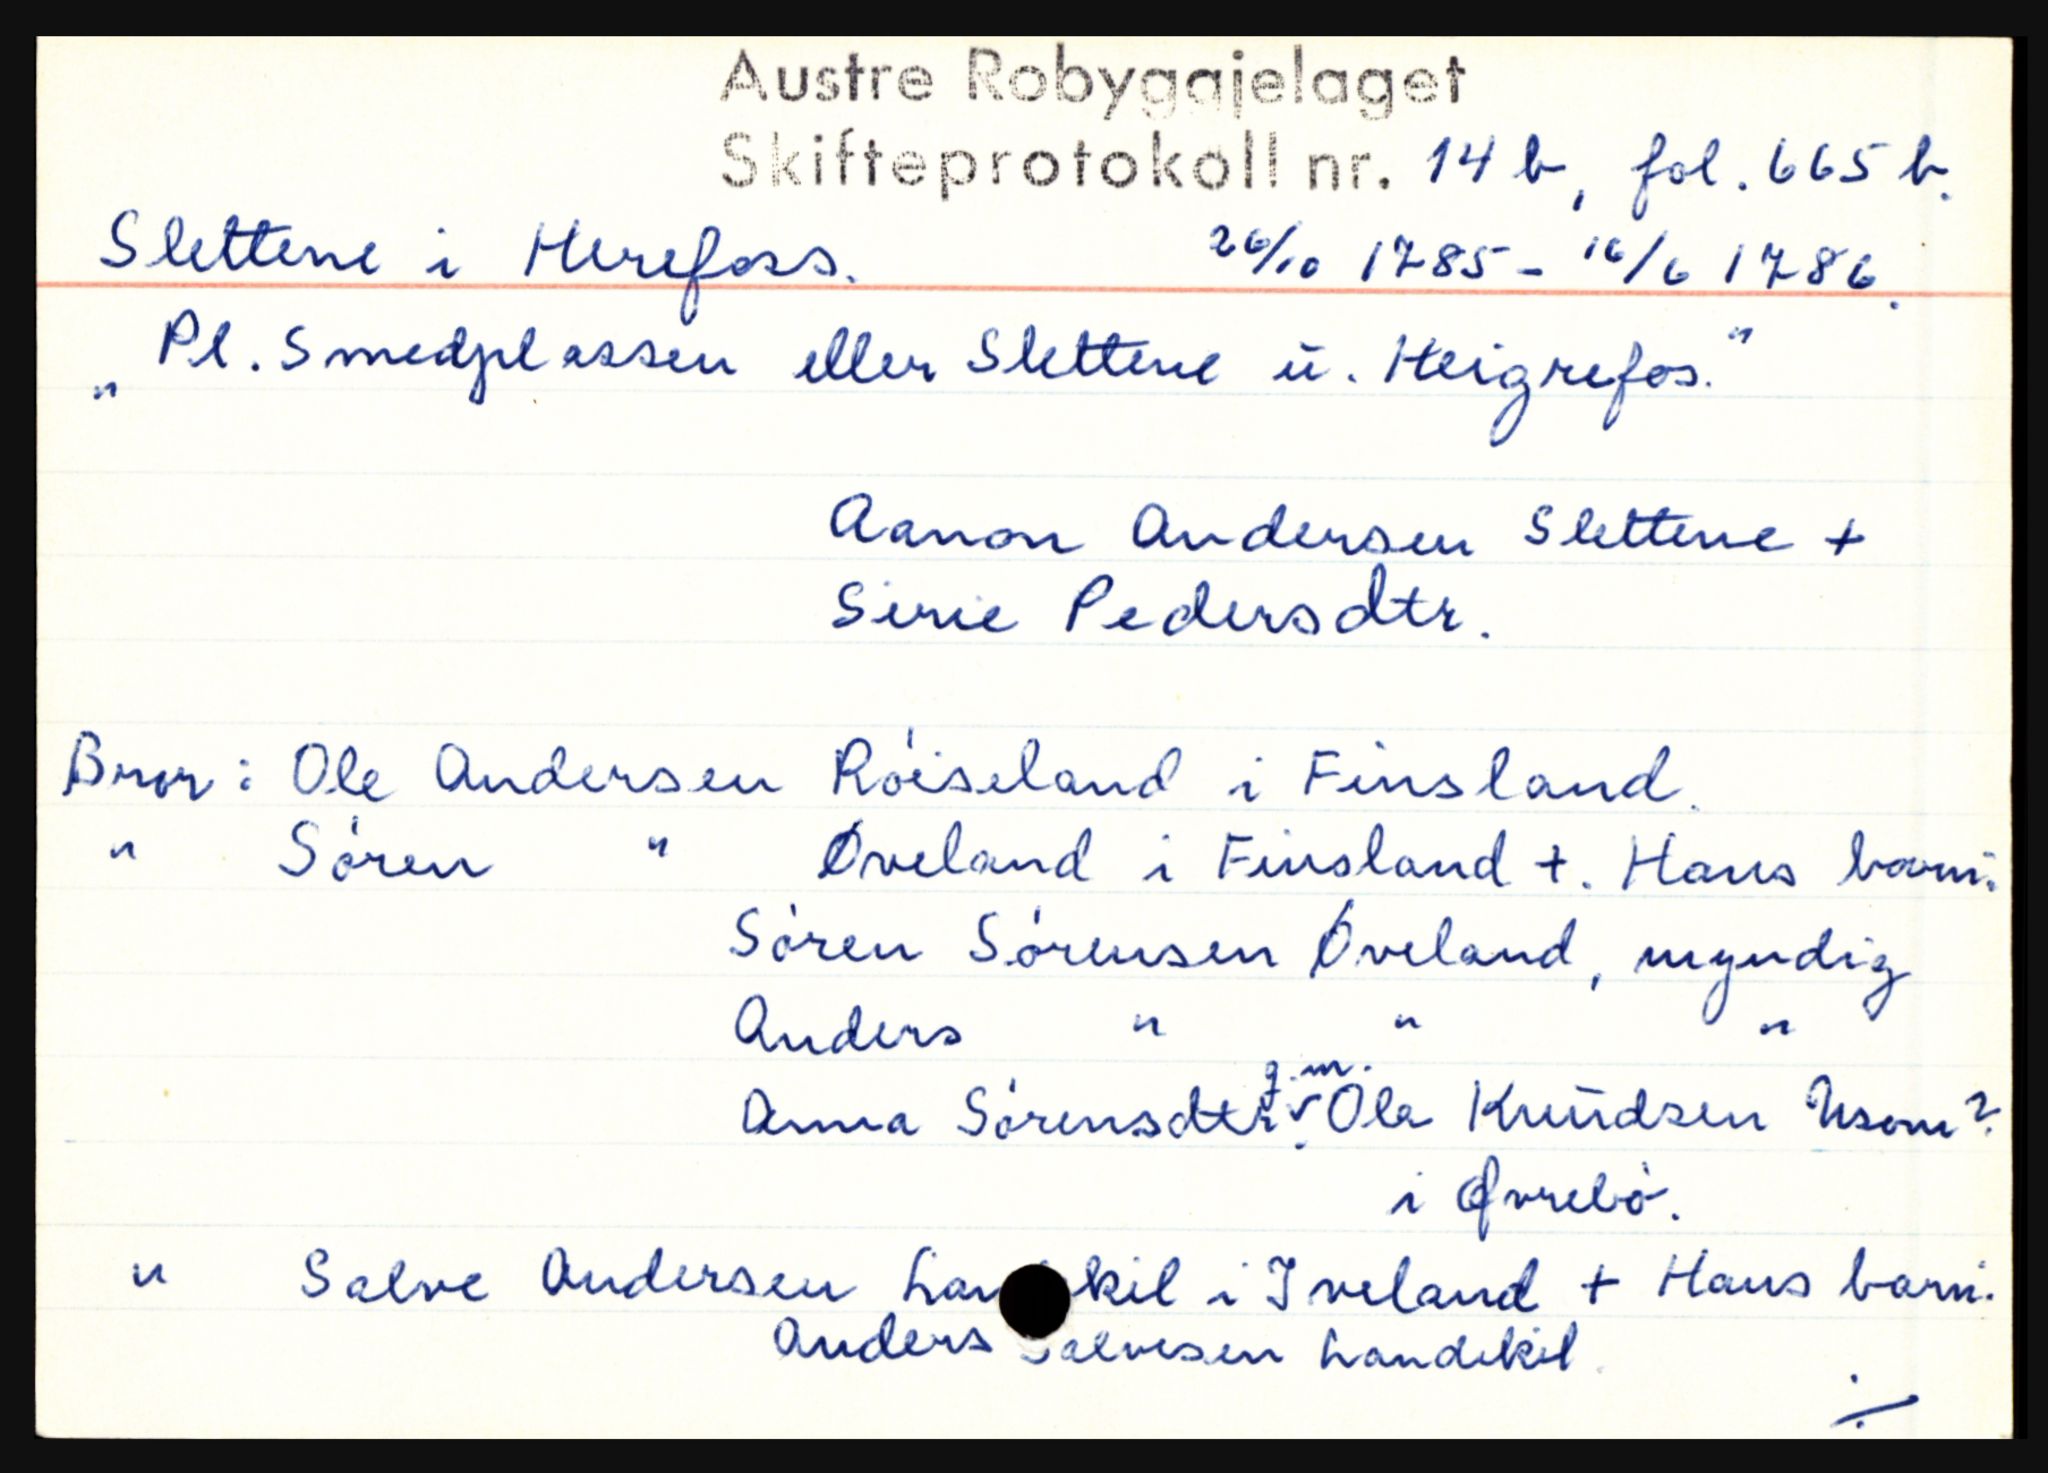 Austre Robyggjelaget
Skifteprotokoll nr. 14 b, fol. 665 b.
Slettene i Herefoss. 26/10 1785 - 16/6 1786.
"Pl. Smedplassen eller Slettene ū. Heigrefos."
Aanon Andersen Slettene +
Sirie Pedersdtr.
Bror: Ole Andersen Röiseland i Finsland.
" Sören " Øveland i Finsland +. Hans barn:
Sören Sörensen Øveland, myndig
Anders " " "
g.m.
Anna Sörensdtr. v Ola Knūdsen Usom?
i Øvrebö.
" Salve Andersen Landekil i Iveland + Hans barn:
Anders Salvesen Landekil.
./.